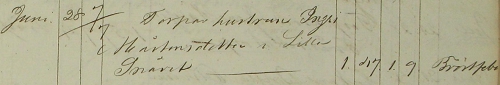 Juni 28 7/7 Torpar hustrun Ingri
Mårtensdotter i Lilla
Snäret — 1 47. 1. 9